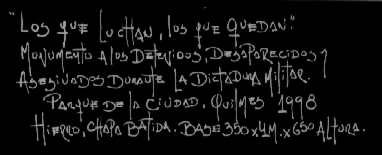 "Los que Luchan, los que Quedan."
Monumento a los Detenidos, Desaparecidos y
Asesinados Durante La Dictadura Militar.
Parque de la Ciudad, Quilmes 1998
Hierro, Chapa Batida. Base 350 x 4M. x 650 Altura.